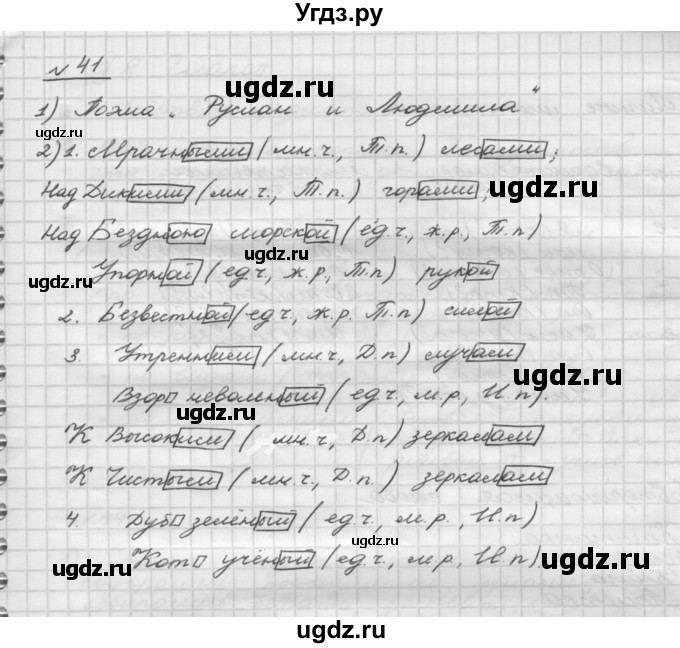 Угдз.ру
№ 41
1) Поэма „Руслан и Людмила“
2) 1. Мрачными (мн.ч., Т.п.) лесами;
Над Дикими (мн.ч., Т.п.) горами;
Над Бездною морской (ед.ч., ж.р., Т.п)
Упорной (ед.ч, ж.р, Т.п) рукой
2. Безвестной (ед.ч, ж.р. Т.п) силой
3. Утренним (мн.ч, Д.п) случаям
Взор невольный (ед.ч., м.р, И.п).
К Высоким (мн.ч, Д.п) зеркалам
К Чистым (мн.ч, Д.п.) зеркалам
4. Дуб зелёный (ед.ч, м.р., И.п)
Кот учёный (ед.ч, м.р., И.п).
ugdz.ru
ugdz.ru
ugdz.ru
ugdz.ru
ugdz.ru
ugdz.ru
ugdz.ru
ugdz.ru
ugdz.ru
ugdz.ru
ugdz.ru
ugdz.ru